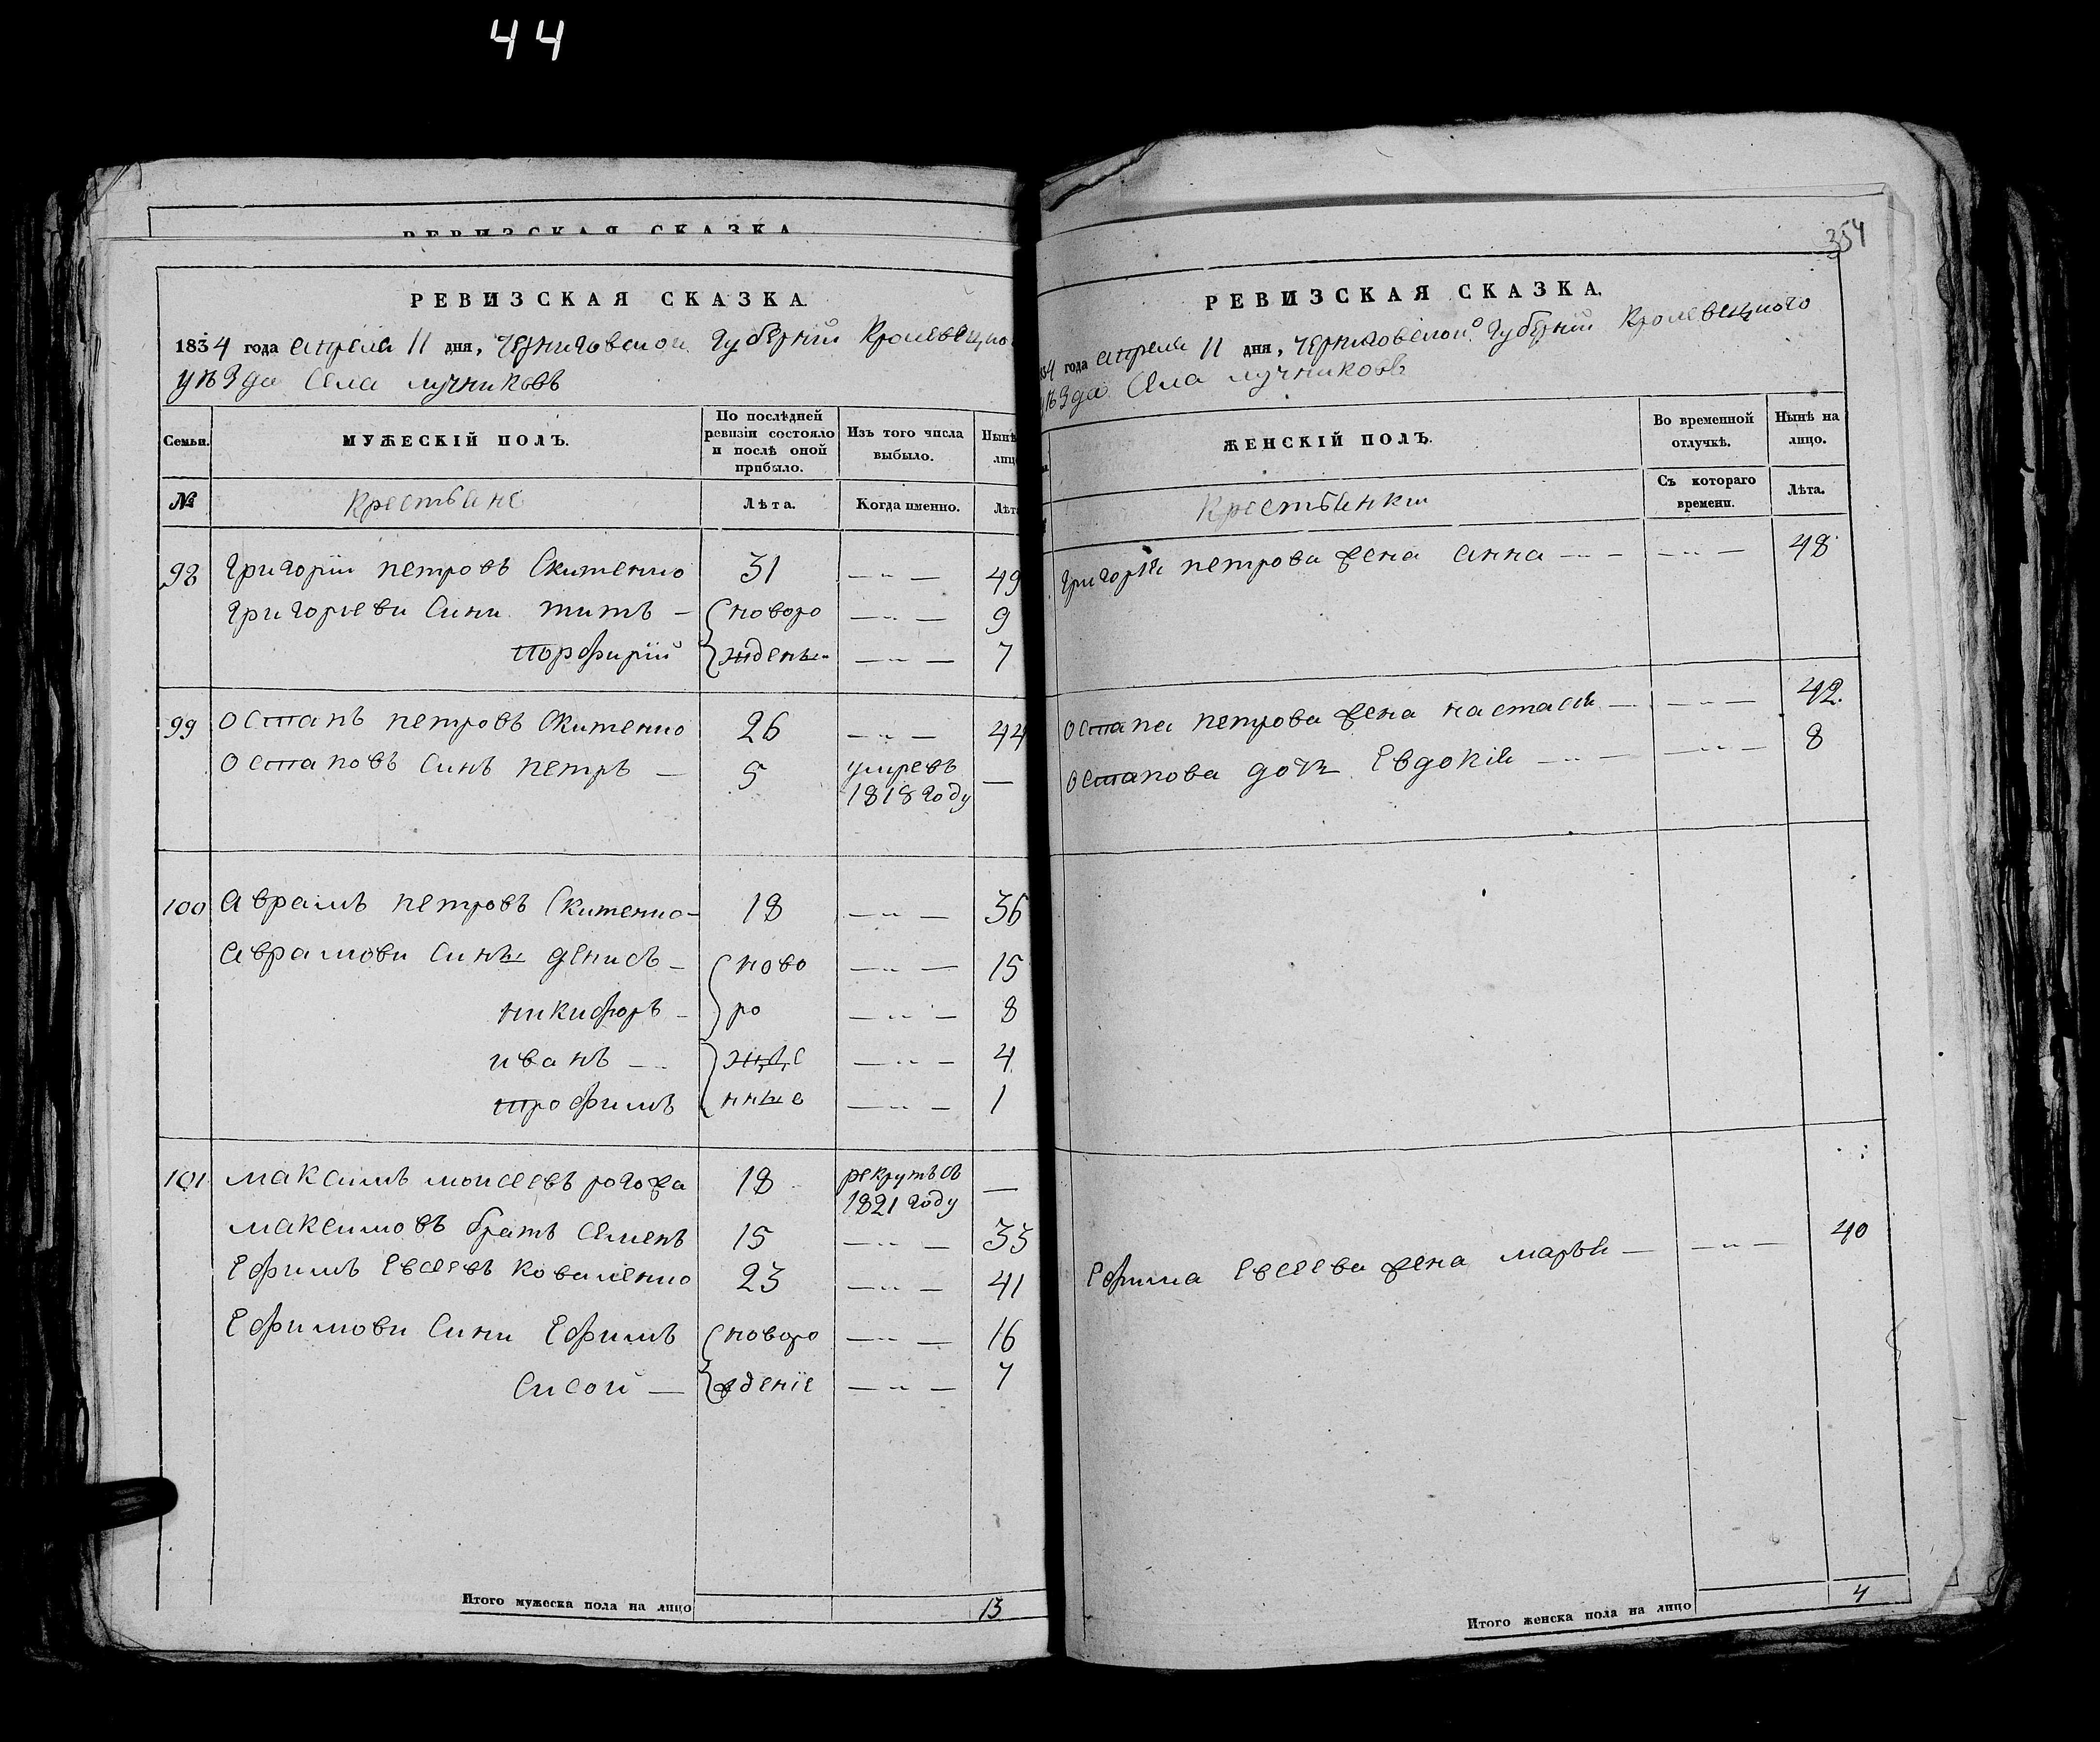 44
РЕВИЗСКАЯ СКАЗКА
РЕВИЗСКАЯ СКАЗКА.
1834 года апреля 11 дня, Черниговской Губернiи Кролевецко
уѣзда Села лучниковъ
Семьи.
МУЖЕСКІЙ ПОЛЪ.
По послѣдней ревизіи состояло и послѣ оной прибыло.
Изъ того числа выбыло.
Нынѣ лицо
№
Крестьяне
Лѣта.
Когда именно.
Лѣта
98 Григорiй петровъ Скитенко 31 —„— 49
Григорiеви Сини титъ — новоро —„— 9
Порфирiй жdены —„— 7
99 Остапъ петровъ Скитенко 26 —„— 44
Остаповъ Синъ петръ — 5 умревъ 1818 году —
100 Аврамъ петровъ Скитенко - 18 —„— 36
Аврамови Сины денисъ — ново —„— 15
никифоръ - ро —„— 8
иванъ — жде —„— 4
трофимъ нные —„— 1
101 максимъ моисеевъ рогожа 18 рекрутъ съ 1821 году —
максимовъ братъ Семенъ 15 —„— 33
Ефимъ Евсеевъ коваленко 23 —„— 41
Ефимови Сини Ефимъ новоро —„— 16
Сисой — жденiе —„— 7
Итого мужеска пола на лицо 13
354
РЕВИЗСКАЯ СКАЗКА.
34 года апреля 11 дня, Черниговской Губернiи Кролевецкого
уѣзда Села лучниковъ
ЖЕНСКІЙ ПОЛЪ.
Во временной отлучкѣ.
Нынѣ на лицо.
Крестьянки
Съ котораго времени.
Лѣта.
Григорiя петрова жена анна —„— —„— 48
Остапа петрова жена настася — —„— 42
Остапова дочь Евдокiя —„— —„— 8
Ефима Евсеева жена марья — —„— 40
Итого женска пола на лицо 4